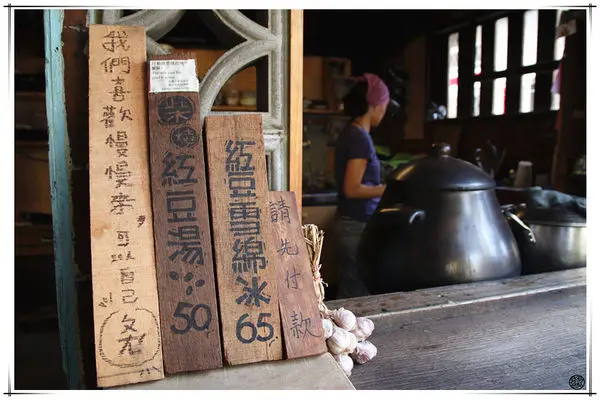 我們喜歡慢慢來 可以自己ㄆㄤ
柴燒紅豆湯 50
紅豆雪綿冰 65
請先付款